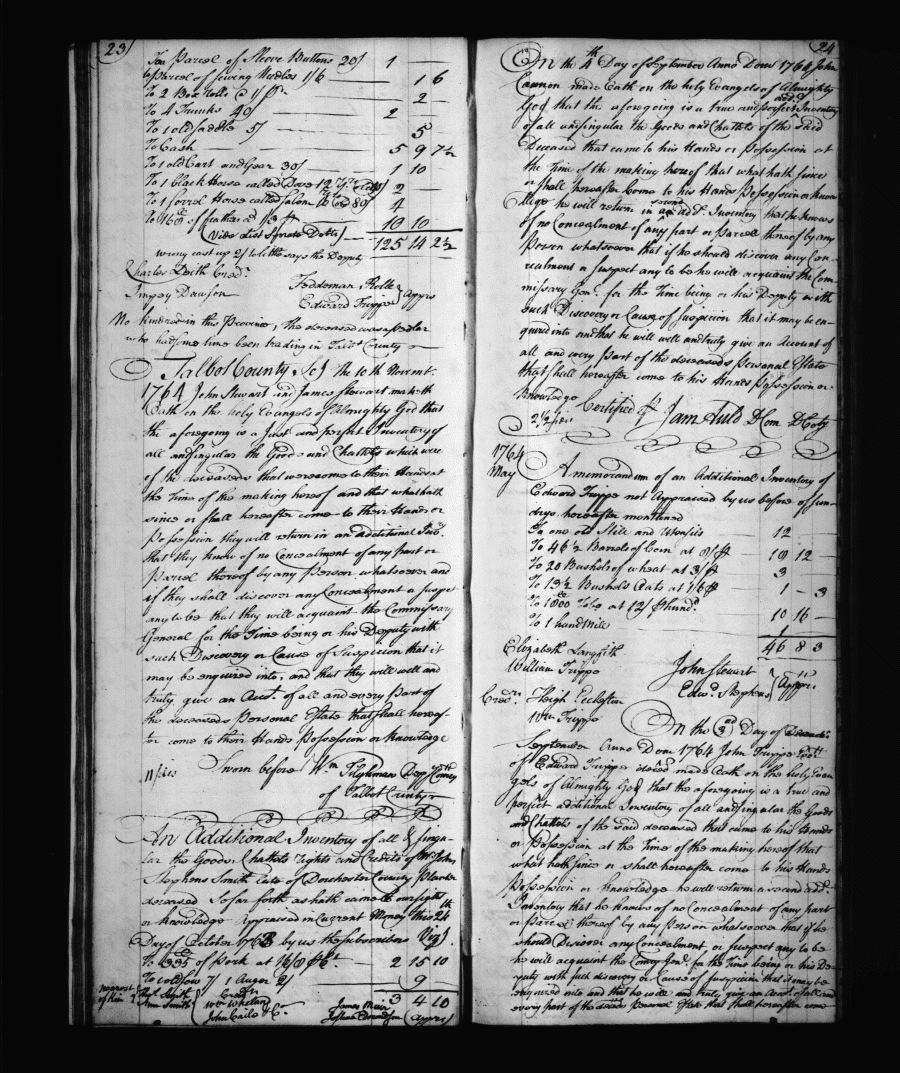 23
Parcel of Sleeve Buttons 20/ 1 —
To Parcel of sewing Needles 1/6 1 6
To 2 Box 2 —
To 4 Trunks 40/ 2 —
To 1 old saddle 5/ 5
To Cash 5 9 7½
To 1 old Cart and Gear 30/ 1 10
To 1 black Horse called Dove 12 Yrs 2 —
To 1 sorrel Horse called 80/ 4
To of feathers 10 10
(Vide list Sperate Debts) 125 14 2½
wrong cast up 2/ to little says the Deputy
Charles Credr.
Impey Dawson
Feddeman Rolle
Edward Trippe Apprs
No kindred in this Province, the deceased was a pedlar
who had some time been trading in Talbt County
Talbot County Sct. The 10th Novemr.
1764 John Stewart and James Stewart maketh
Oath on the holy Evangels of Almighty God that
the aforegoing is a Just and perfect Inventory of
all and singular the Goods and Chattels which were
of the deceaseds that were come to their Hands at
the Time of the making hereof and that what hath
since or shall hereafter come to their Hands or
Possession they will return in an additional Invy.
that they know of no Concealment of any part or
Parcel thereof by any Person whatsoever and
if they shall discover any Concealment or suspect
any to be that they will acquaint the Commissary
General for the Time being or his Deputy with
such Discovery or Cause of Suspicion that it
may be enquired into, and that they will well and
truly give an Acct. of all and every part of
the deceaseds Personal Estate that shall hereaf-
ter come to their Hands Possession or Knowledge
11 sides Sworn before Wm Tilghman Depy Comry
of Talbot County
An Additional Inventory of all & singu-
lar the Goods Chattels Rights and Credits of Mr John
Stephens Smith late of Dorchester County Planter
deceased so far forth as hath came to our sight
or knowledge Appraised in Current Money this 24th
Day of October 1763 by us the subscribers Vizt.
To 335 of Pork at 16/8 2 15 10
To 1 old 7/ 1 Auger 2/ 9 —
3 4 10
nearest
of Kin
Ann Smith
Creditrs
Wm Whitan
John Caile & Co.
James Muir
Apprs
24
On the 4th Day of September Anno Dom 1764 John
Cannon made Oath on the holy Evangels of Almighty
God that the aforegoing is a true and perfect addl. Inventory
of all and singular the Goods and Chattels of the said
Deceased that came to his Hands or Possession at
the Time of the making hereof that what hath since
or shall hereafter come to his Hands Possession or Know-
ledge he will return in a second addl. Inventory that he knows
of no Concealment of any part or Parcel thereof by any
Person whatsoever that if he should discover any Con-
cealment or suspect any to be he will acquaint the Com-
missary Genl. for the Time being or his Deputy with
such Discovery or Cause of Suspicion that it may be en-
quired into and that he will well and truly give an Account of
all and every Part of the deceaseds Personal Estate
that shall hereafter come to his Hands Possession or
Knowledge
2½ sides Certified pr Jam Auld D Com D Coty
1764
May A memorandum of an Additional Inventory of
Edward Trippe not Appraised by us before of sun-
drys hereafter mentioned
To one old Still and Utensils 12
To 46½ Barrels of Corn at 8/ pr 18 12 —
To 20 Bushels of wheat at 3/ pr 3
To 13½ Bushels Oats at 1/6 pr 1 — 3
To 1800 lb Tobo at 12/ phund. 10 16 —
To 1 hand Mill 1
46 8 3
Elizabeth
William Trippe
John Stewart
Edwd. Stephens Apprs.
Credrs. Heigh Eccleston
Wm Trippe
On the 3rd Day of
September Anno Dom 1764 John Trippe Exctr
of Edward Trippe deced made Oath on the holy Evan
gels of Almighty God that the aforegoing is a true and
perfect additional Inventory of all and singular the Goods
and Chattels of the said deceased that came to his Hands
or Possession at the Time of the making hereof that
what hath since or shall hereafter come to his Hands
Possession or Knowledge he will return a second addl.
Inventory that he knows of no Concealment of any part
or Parcel thereof by any Person whatsoever that if he
should Discover any Concealment or suspect any to be
he will acquaint the Comry Genl. for the Time being or his De-
puty with such discovery or Cause of suspicion that it may be
enquired into and that he will well and truly give an Acct of all and
every part of the deceds Personal Estate that shall hereafter come